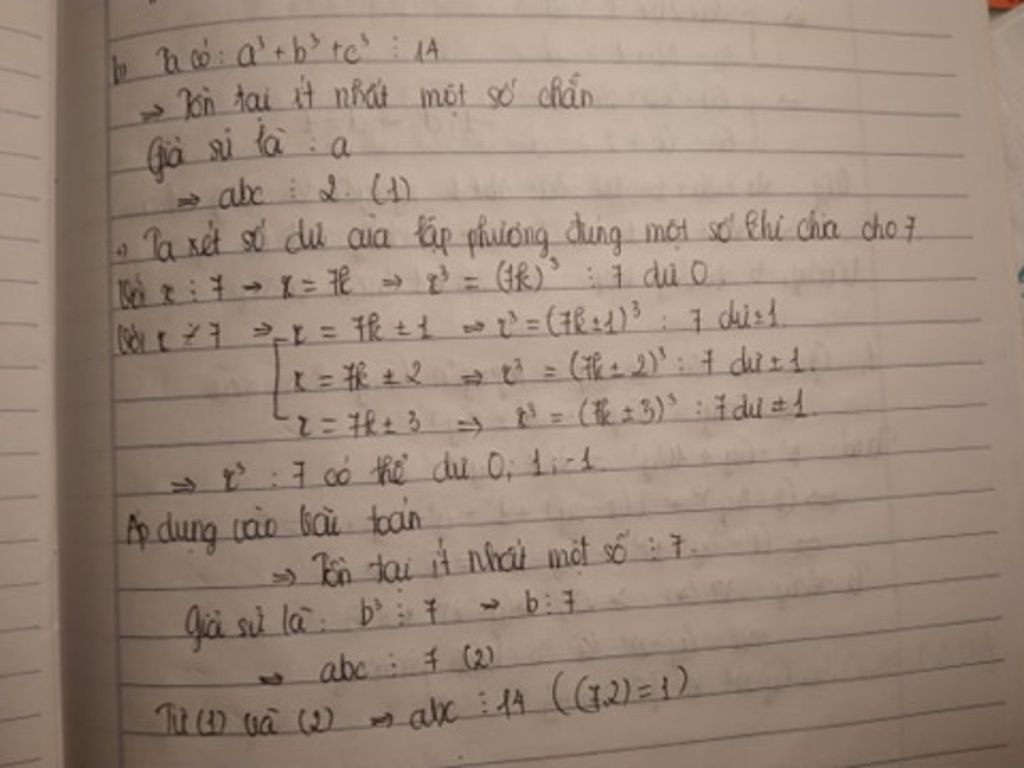 b, Ta có: a³ + b³ + c³ ⋮ 14
⇒ Tồn tại ít nhất một số chẵn
Giả sử là : a
⇒ abc ⋮ 2. (1)
Ta xét số dư của lập phương dùng một số khi chia cho 7
Với x ⋮ 7 → x = 7k ⇒ x³ = (7k)³ : 7 dư 0
Với x ⋮̸ 7 ⇒ x = 7k ± 1 ⇒ x³ = (7k±1)³ : 7 dư ±1
x = 7k ± 2 ⇒ x³ = (7k ± 2)³ : 7 dư ± 1.
x = 7k ± 3 ⇒ x³ = (7k ± 3)³ : 7 dư ± 1.
⇒ x³ : 7 có thể dư 0, 1, -1.
Áp dụng vào bài toán
⇒ Tồn tại ít nhất một số ⋮ 7.
Giả sử là: b³ ⋮ 7 → b ⋮ 7
⇒ abc ⋮ 7 (2)
Từ (1) và (2) ⇒ abc ⋮ 14 ((7,2)=1)